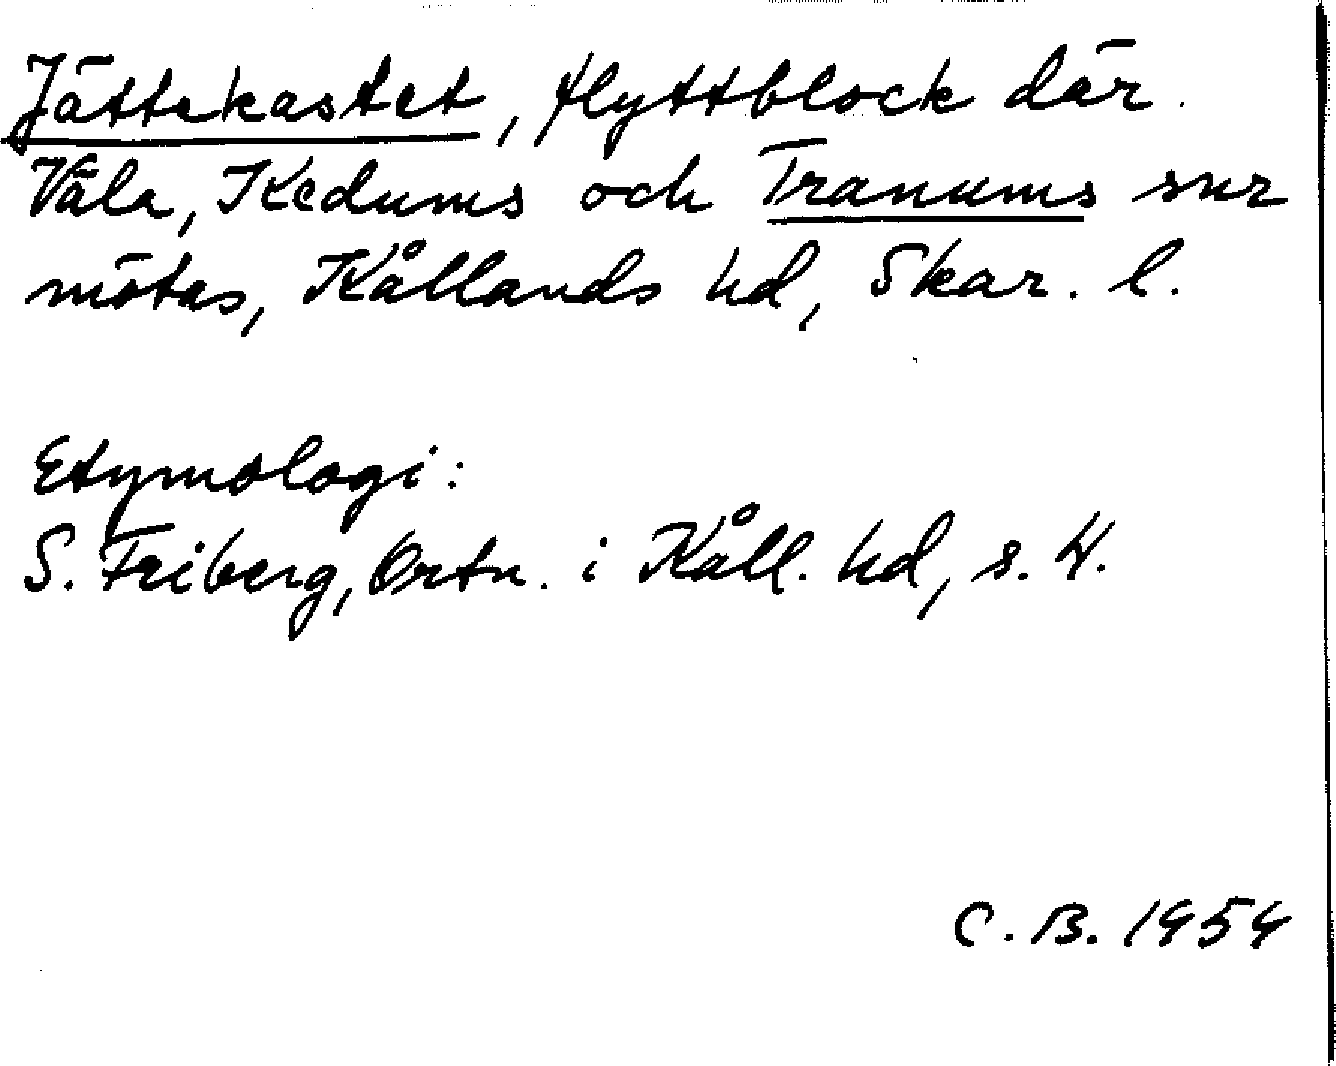 Jättekastet, flyttblock där
Väla, Kedums och Tranums snr
mötas, Kållands hd, Skar. l.
Etymologi:
S. Friberg, Ortn. i Kåll. hd, s. 4.
C. B. 1954